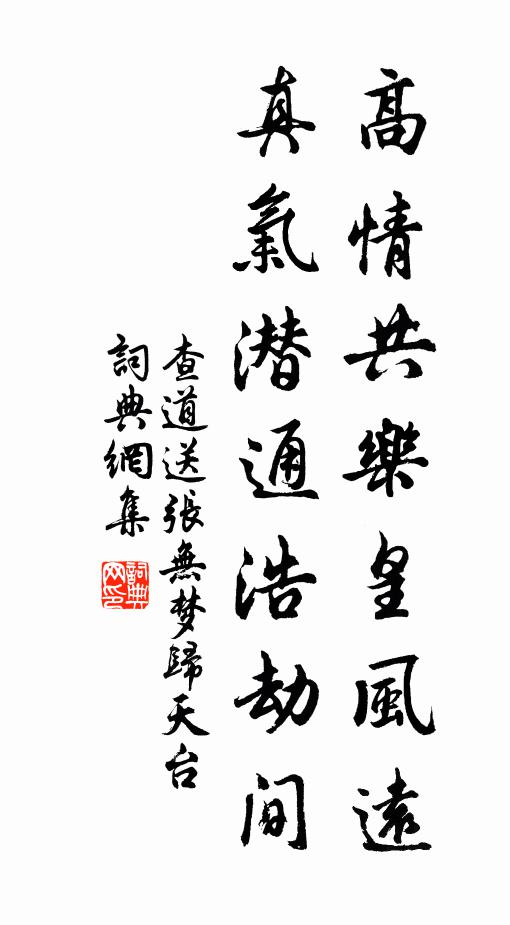 高情共樂皇風遠
真氣潛通浩劫间
查道送張無梦歸天台
詞典網集
詞典
网印